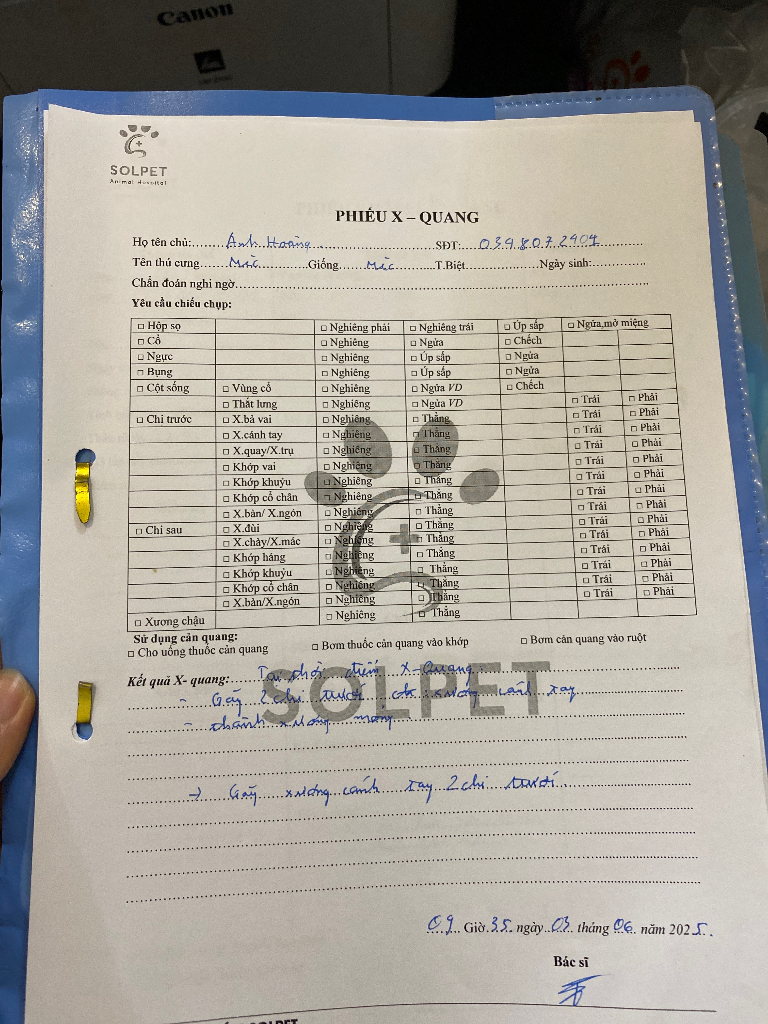 Canon
SOLPET
Animal Hospital
PHIẾU X – QUANG
Họ tên chủ: Anh Hoàng SĐT: 039.807.2909
Tên thú cưng Mic Giống Mic T.Biệt Ngày sinh:
Chẩn đoán nghi ngờ
Yêu cầu chiếu chụp:
□ Hộp sọ □ Nghiêng phải □ Nghiêng trái □ Úp sấp □ Ngửa,mở miệng
□ Cổ □ Nghiêng □ Ngửa □ Chếch
□ Ngực □ Nghiêng □ Úp sấp □ Ngửa
□ Bụng □ Nghiêng □ Úp sấp □ Ngửa
□ Cột sống □ Vùng cổ □ Nghiêng □ Ngửa VD □ Chếch
□ Thắt lưng □ Nghiêng □ Ngửa VD □ Trái □ Phải
□ Chi trước □ X.bả vai □ Nghiêng □ Thẳng □ Trái □ Phải
□ X.cánh tay □ Nghiêng □ Thẳng □ Trái □ Phải
□ X.quay/X.trụ □ Nghiêng □ Thẳng □ Trái □ Phải
□ Khớp vai □ Nghiêng □ Thẳng □ Trái □ Phải
□ Khớp khuỷu □ Nghiêng □ Thẳng □ Trái □ Phải
□ Khớp cổ chân □ Nghiêng □ Thẳng □ Trái □ Phải
□ X.bàn/ X.ngón □ Nghiêng □ Thẳng □ Trái □ Phải
□ Chi sau □ X.đùi □ Nghiêng □ Thẳng □ Trái □ Phải
□ X.chày/X.mác □ Nghiêng □ Thẳng □ Trái □ Phải
□ Khớp háng □ Nghiêng □ Thẳng □ Trái □ Phải
□ Khớp khuỷu □ Nghiêng □ Thẳng □ Trái □ Phải
□ Khớp cổ chân □ Nghiêng □ Thẳng □ Trái □ Phải
□ X.bàn/X.ngón □ Nghiêng □ Thẳng □ Trái □ Phải
□ Xương chậu □ Nghiêng □ Thẳng
Sử dụng cản quang:
□ Cho uống thuốc cản quang □ Bơm thuốc cản quang vào khớp □ Bơm cản quang vào ruột
Kết quả X- quang: Tại thời điểm X-Quang:
- Gãy 2 chi trước xương cánh tay
- thành xương mỏng
SOLPET
→ Gãy xương cánh tay 2 chi trước.
09 Giờ 35 ngày 03 tháng 06 năm 2025.
Bác sĩ